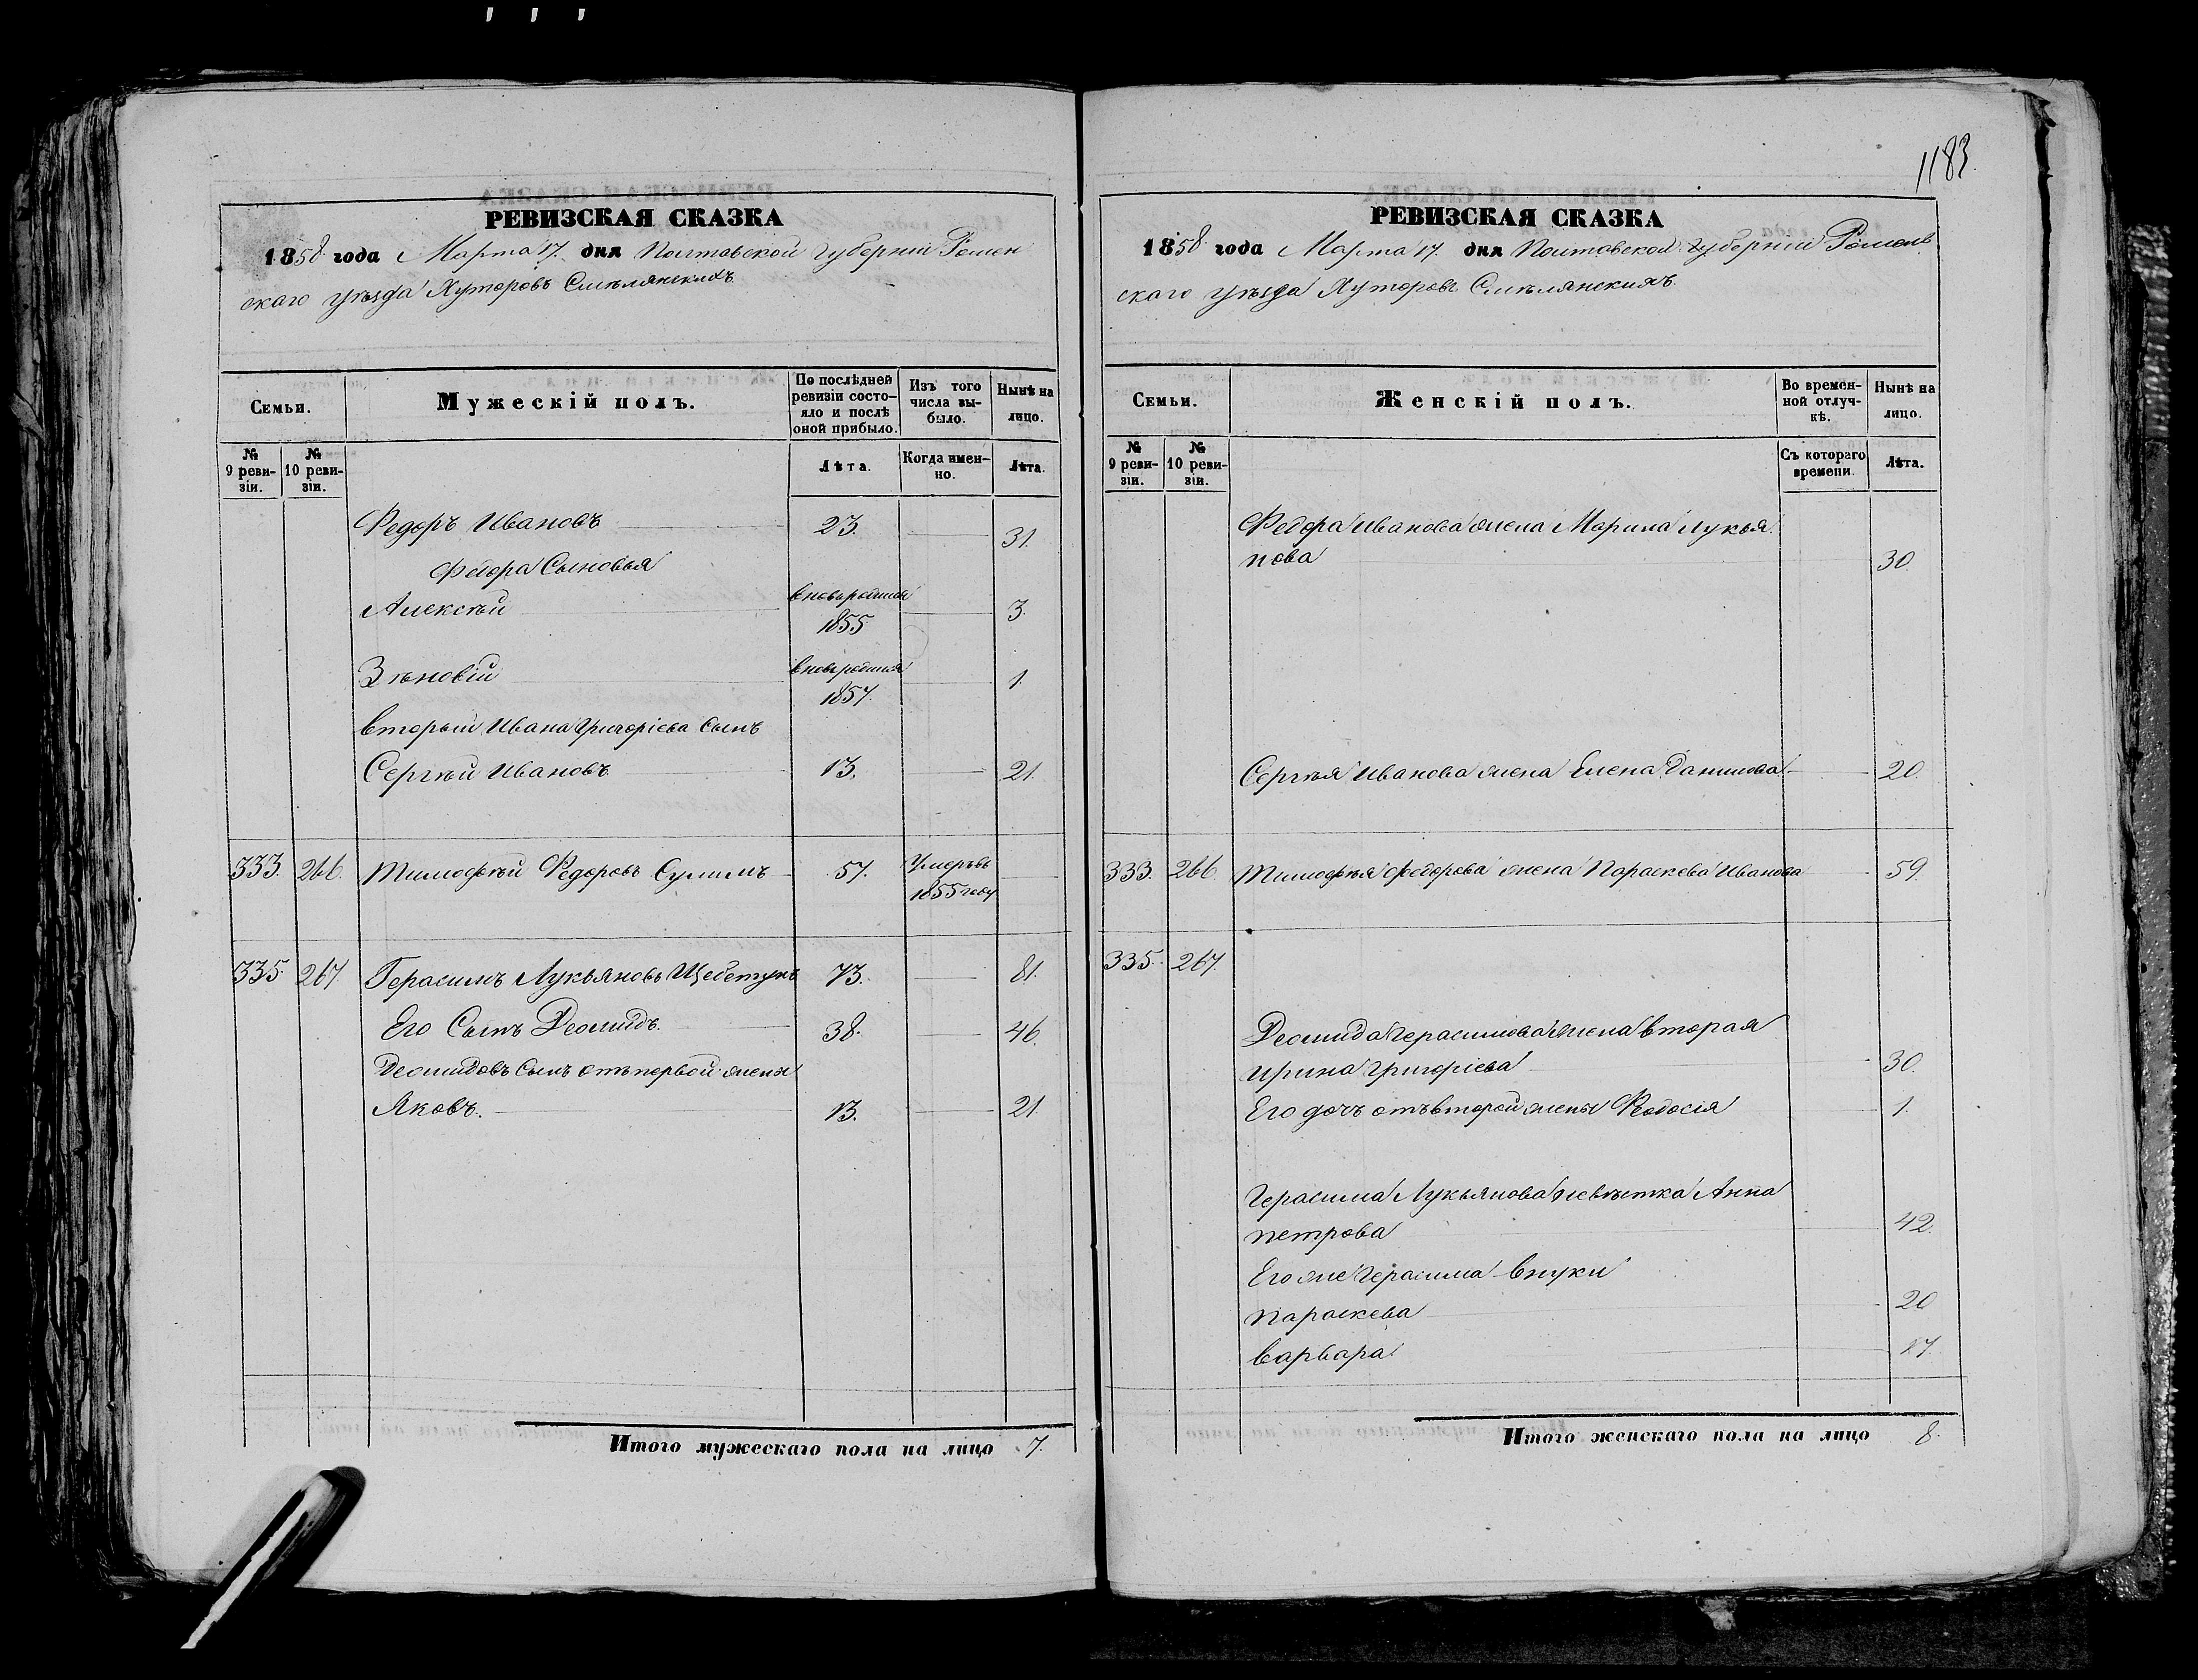 1183.
РЕВИЗСКАЯ СКАЗКА
1858 года Марта 17. дня Полтавской Губерніи Ромен
скаго уѣзда Хуторовъ Смѣлянскихъ
Семьи.
Мужескій полъ.
По послѣдней ревизіи состо-
яло и послѣ
оной прибыло.
Изъ того
числа вы-
было.
Нынѣ на
лицо.
№ 9 реви-
зіи.
№ 10 реви-
зіи.
Лѣта.
Когда имен-
но.
Лѣта.
Федоръ Ивановъ 23. 31.
Федора Сыновья
Алексѣй вновьродился 1855 3.
Зѣновій вновьродился 1857. 1.
вторый Ивана Григоріева Сынъ
Сергѣй Ивановъ 13. 21.
333. 266. Тимофѣй Федоровъ Сулимъ 57. Умеръ въ 1855 году
335. 267. Герасимъ Лукьяновъ Щебетунъ 73. 81.
Его Сынъ Деомидъ. 38. 46.
Деомидовъ Сынъ отъ первой жены
Яковъ. 13. 21.
Итого мужескаго пола на лицо 7.
РЕВИЗСКАЯ СКАЗКА
1858 года Марта 17. дня Полтавской Губерніи Ромен
скаго уѣзда Хуторовъ Смѣлянскихъ.
Семьи.
Женскій полъ.
Во времен-
ной отлуч-
кѣ.
Нынѣ на
лицо.
№ 9 реви-
зіи.
№ 10 реви-
зіи.
Съ котораго
времени.
Лѣта.
Федора Иванова жена Марина Лукья
нова 30.
Сергѣя Иванова жена Елена Данилова 20.
333. 266. Тимофѣя Федорова жена Параскева Иванова 59.
335. 267.
Деомида Герасимова жена вторая
Ирина Григоріева 30.
Его дочь отъ второй жены Федосія 1.
Герасима Лукьянова невѣстка Анна
Петрова 42.
Его же Герасима внуки
Параскева 20
Варвара 17.
Итого женскаго пола на лицо 8.